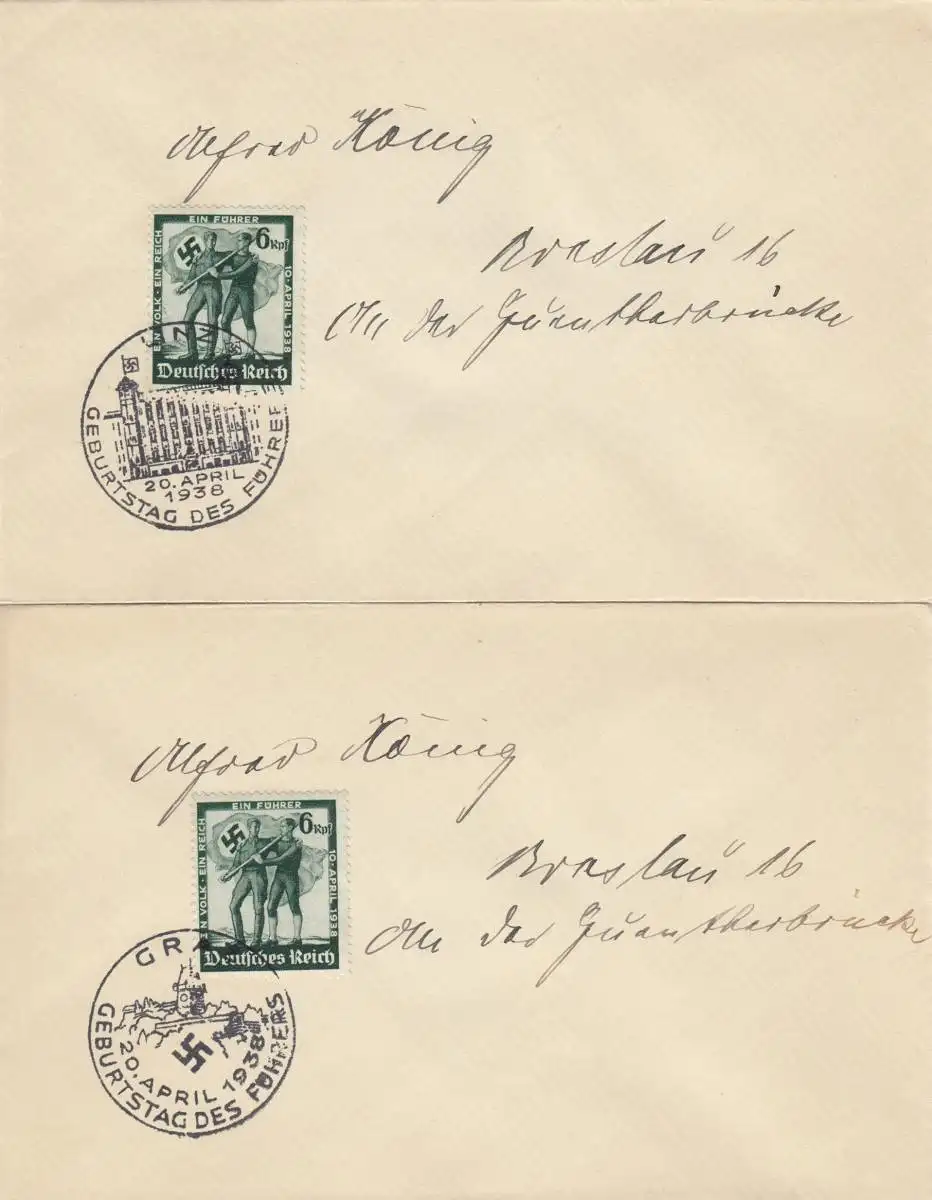 Alfred König
EIN VOLK · EIN REICH
EIN FÜHRER
10. APRIL 1938
6 Rpf
Deutsches Reich
Breslau 16
An der Guentherbrücke
LINZ
20. APRIL
1938
GEBURTSTAG DES FÜHRERS
Alfred König
EIN VOLK · EIN REICH
EIN FÜHRER
10. APRIL 1938
6 Rpf
Deutsches Reich
Breslau 16
An der Guentherbrücke
GRAZ
20. APRIL 1938
GEBURTSTAG DES FÜHRERS